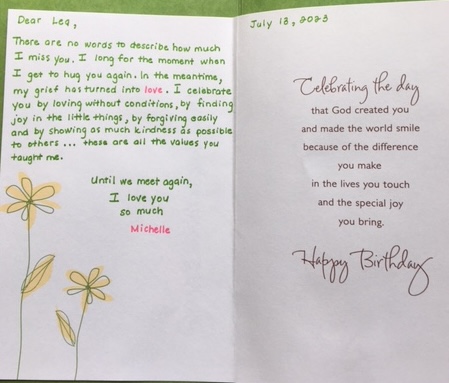 Dear Lea,
There are no words to describe how much
I miss you. I long for the moment when
I get to hug you again. In the meantime,
my grief has turned into love. I celebrate
you by loving without conditions, by finding
joy in the little things, by forgiving easily
and by showing as much kindness as possible
to others... these are all the values you
taught me.
Until we meet again,
I love you
so much
Michelle
July 13, 2023
Celebrating the day
that God created you
and made the world smile
because of the difference
you make
in the lives you touch
and the special joy
you bring.
Happy Birthday